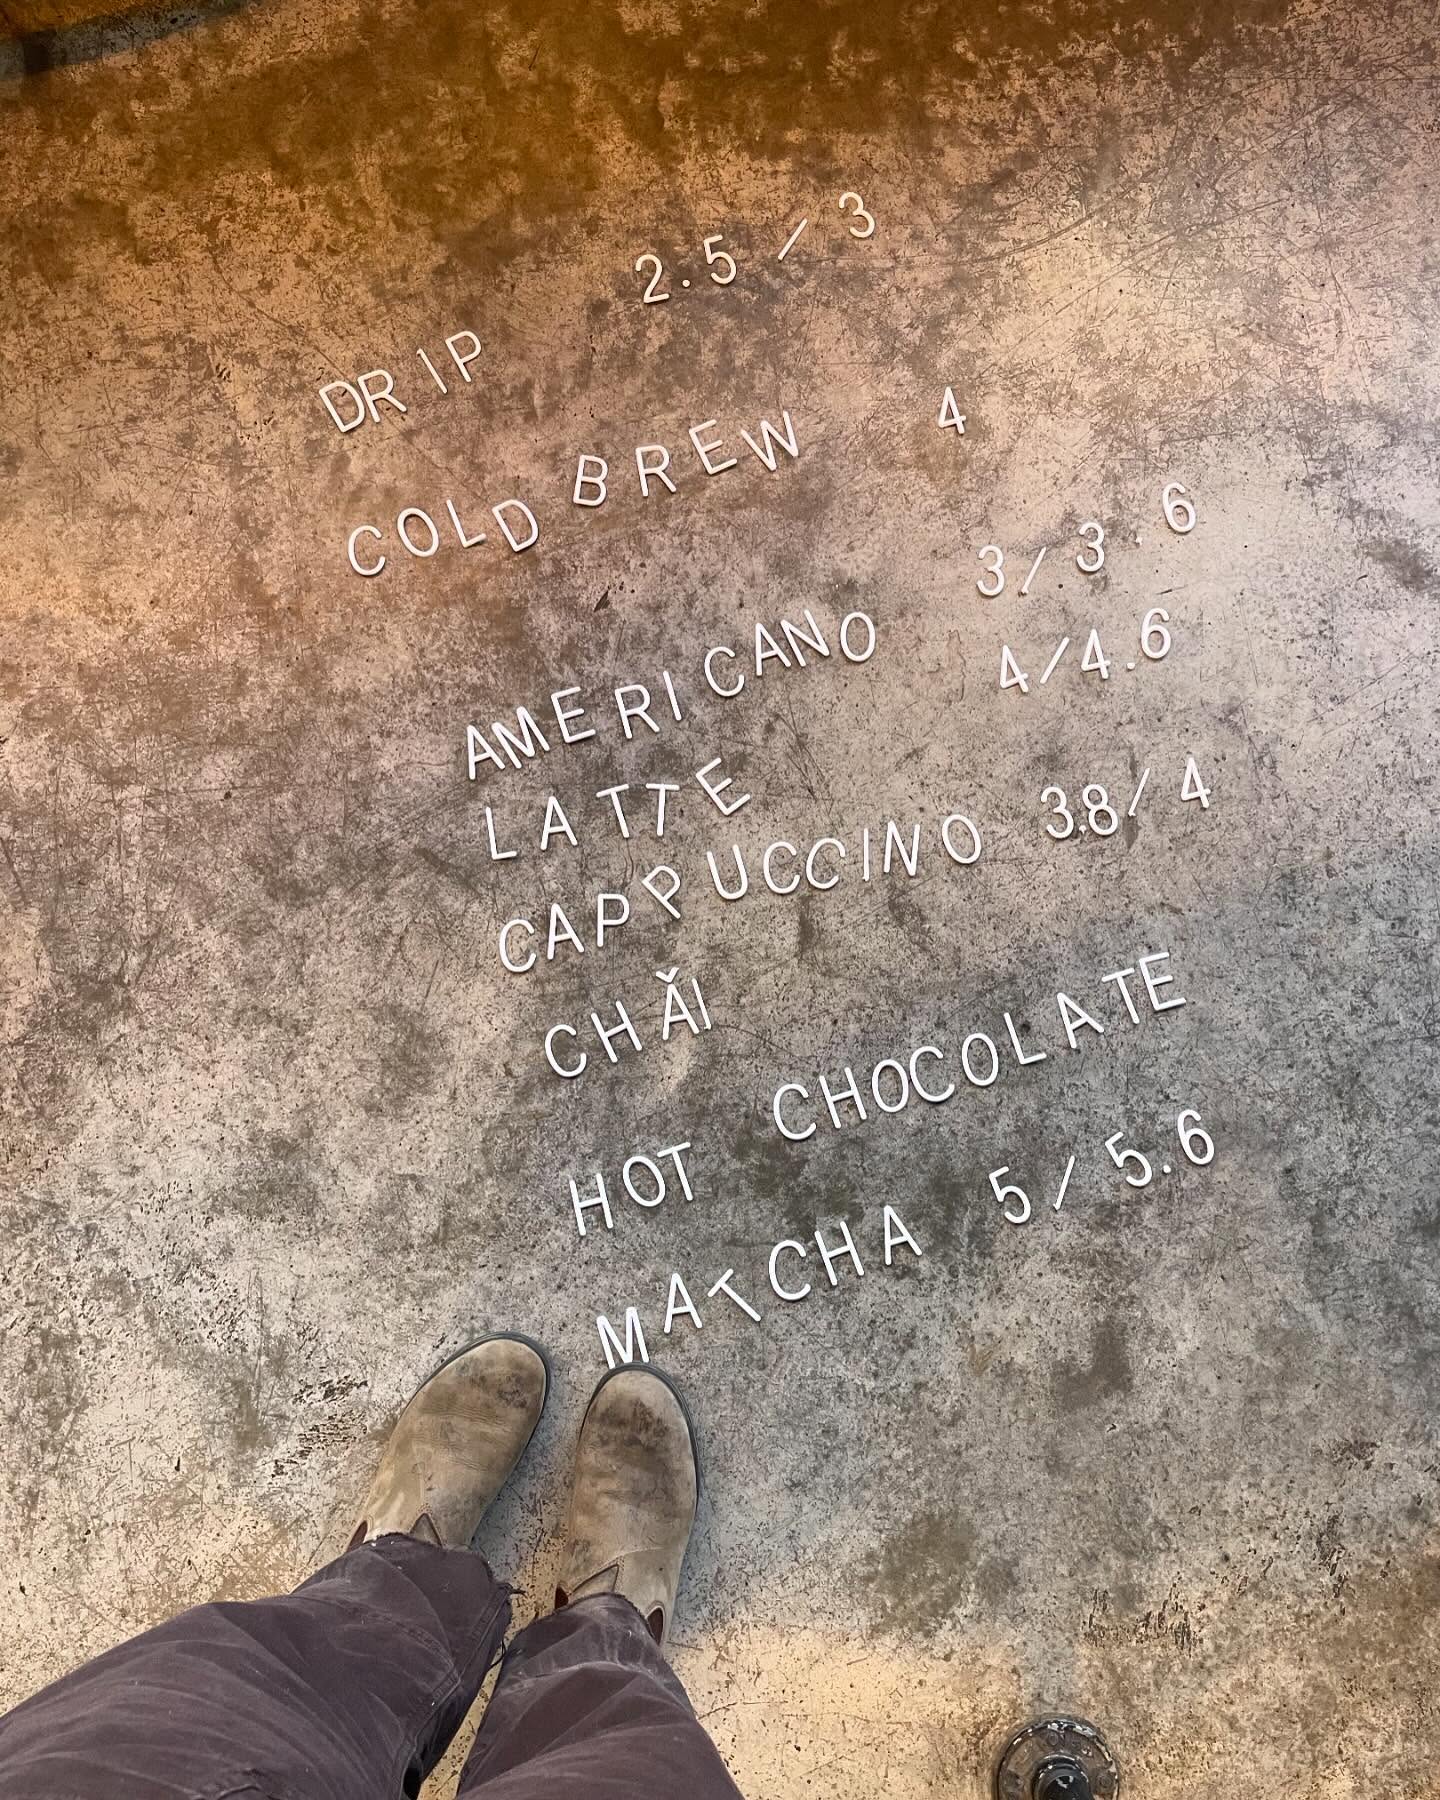 DRIP 2.5/3
COLD BREW 4
AMERICANO 3/3.6
LATTE 4/4.6
CAPPUCCINO 3.8/4
CHǍI
HOT CHOCOLATE
MATCHA 5/5.6